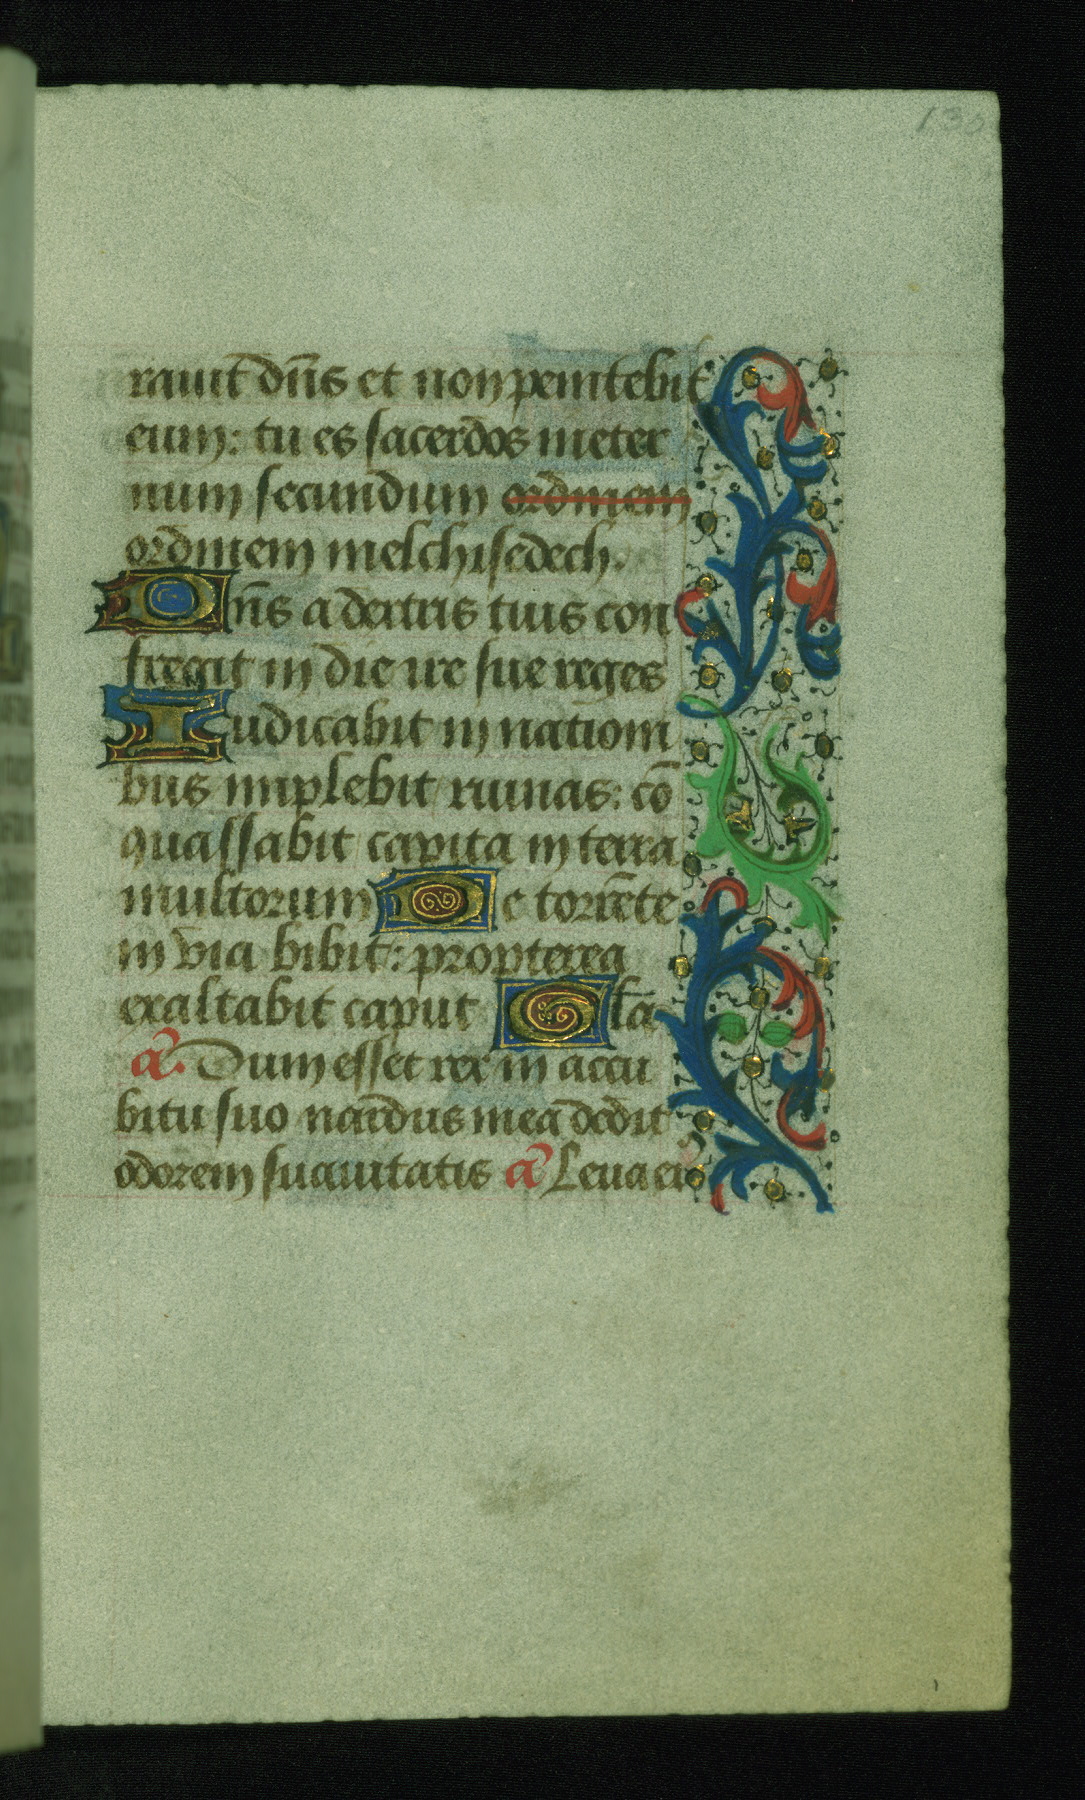 130
rauit dn̄s et non penitebit
eum: tu es sacerdos in eter
num secundum ordinem
ordinem melchisedech.
Dn̄s a dextris tuis con
fregit in die ire sue reges
Iudicabit in nationi
bus implebit ruinas: cō
quassabit capita in terra
multorum De torrēte
in via bibit: propterea
exaltabit caput Gl̄a
a. Dum esset rex in accu
bitu suo nardus mea dedit
odorem suauitatis a Leua ei